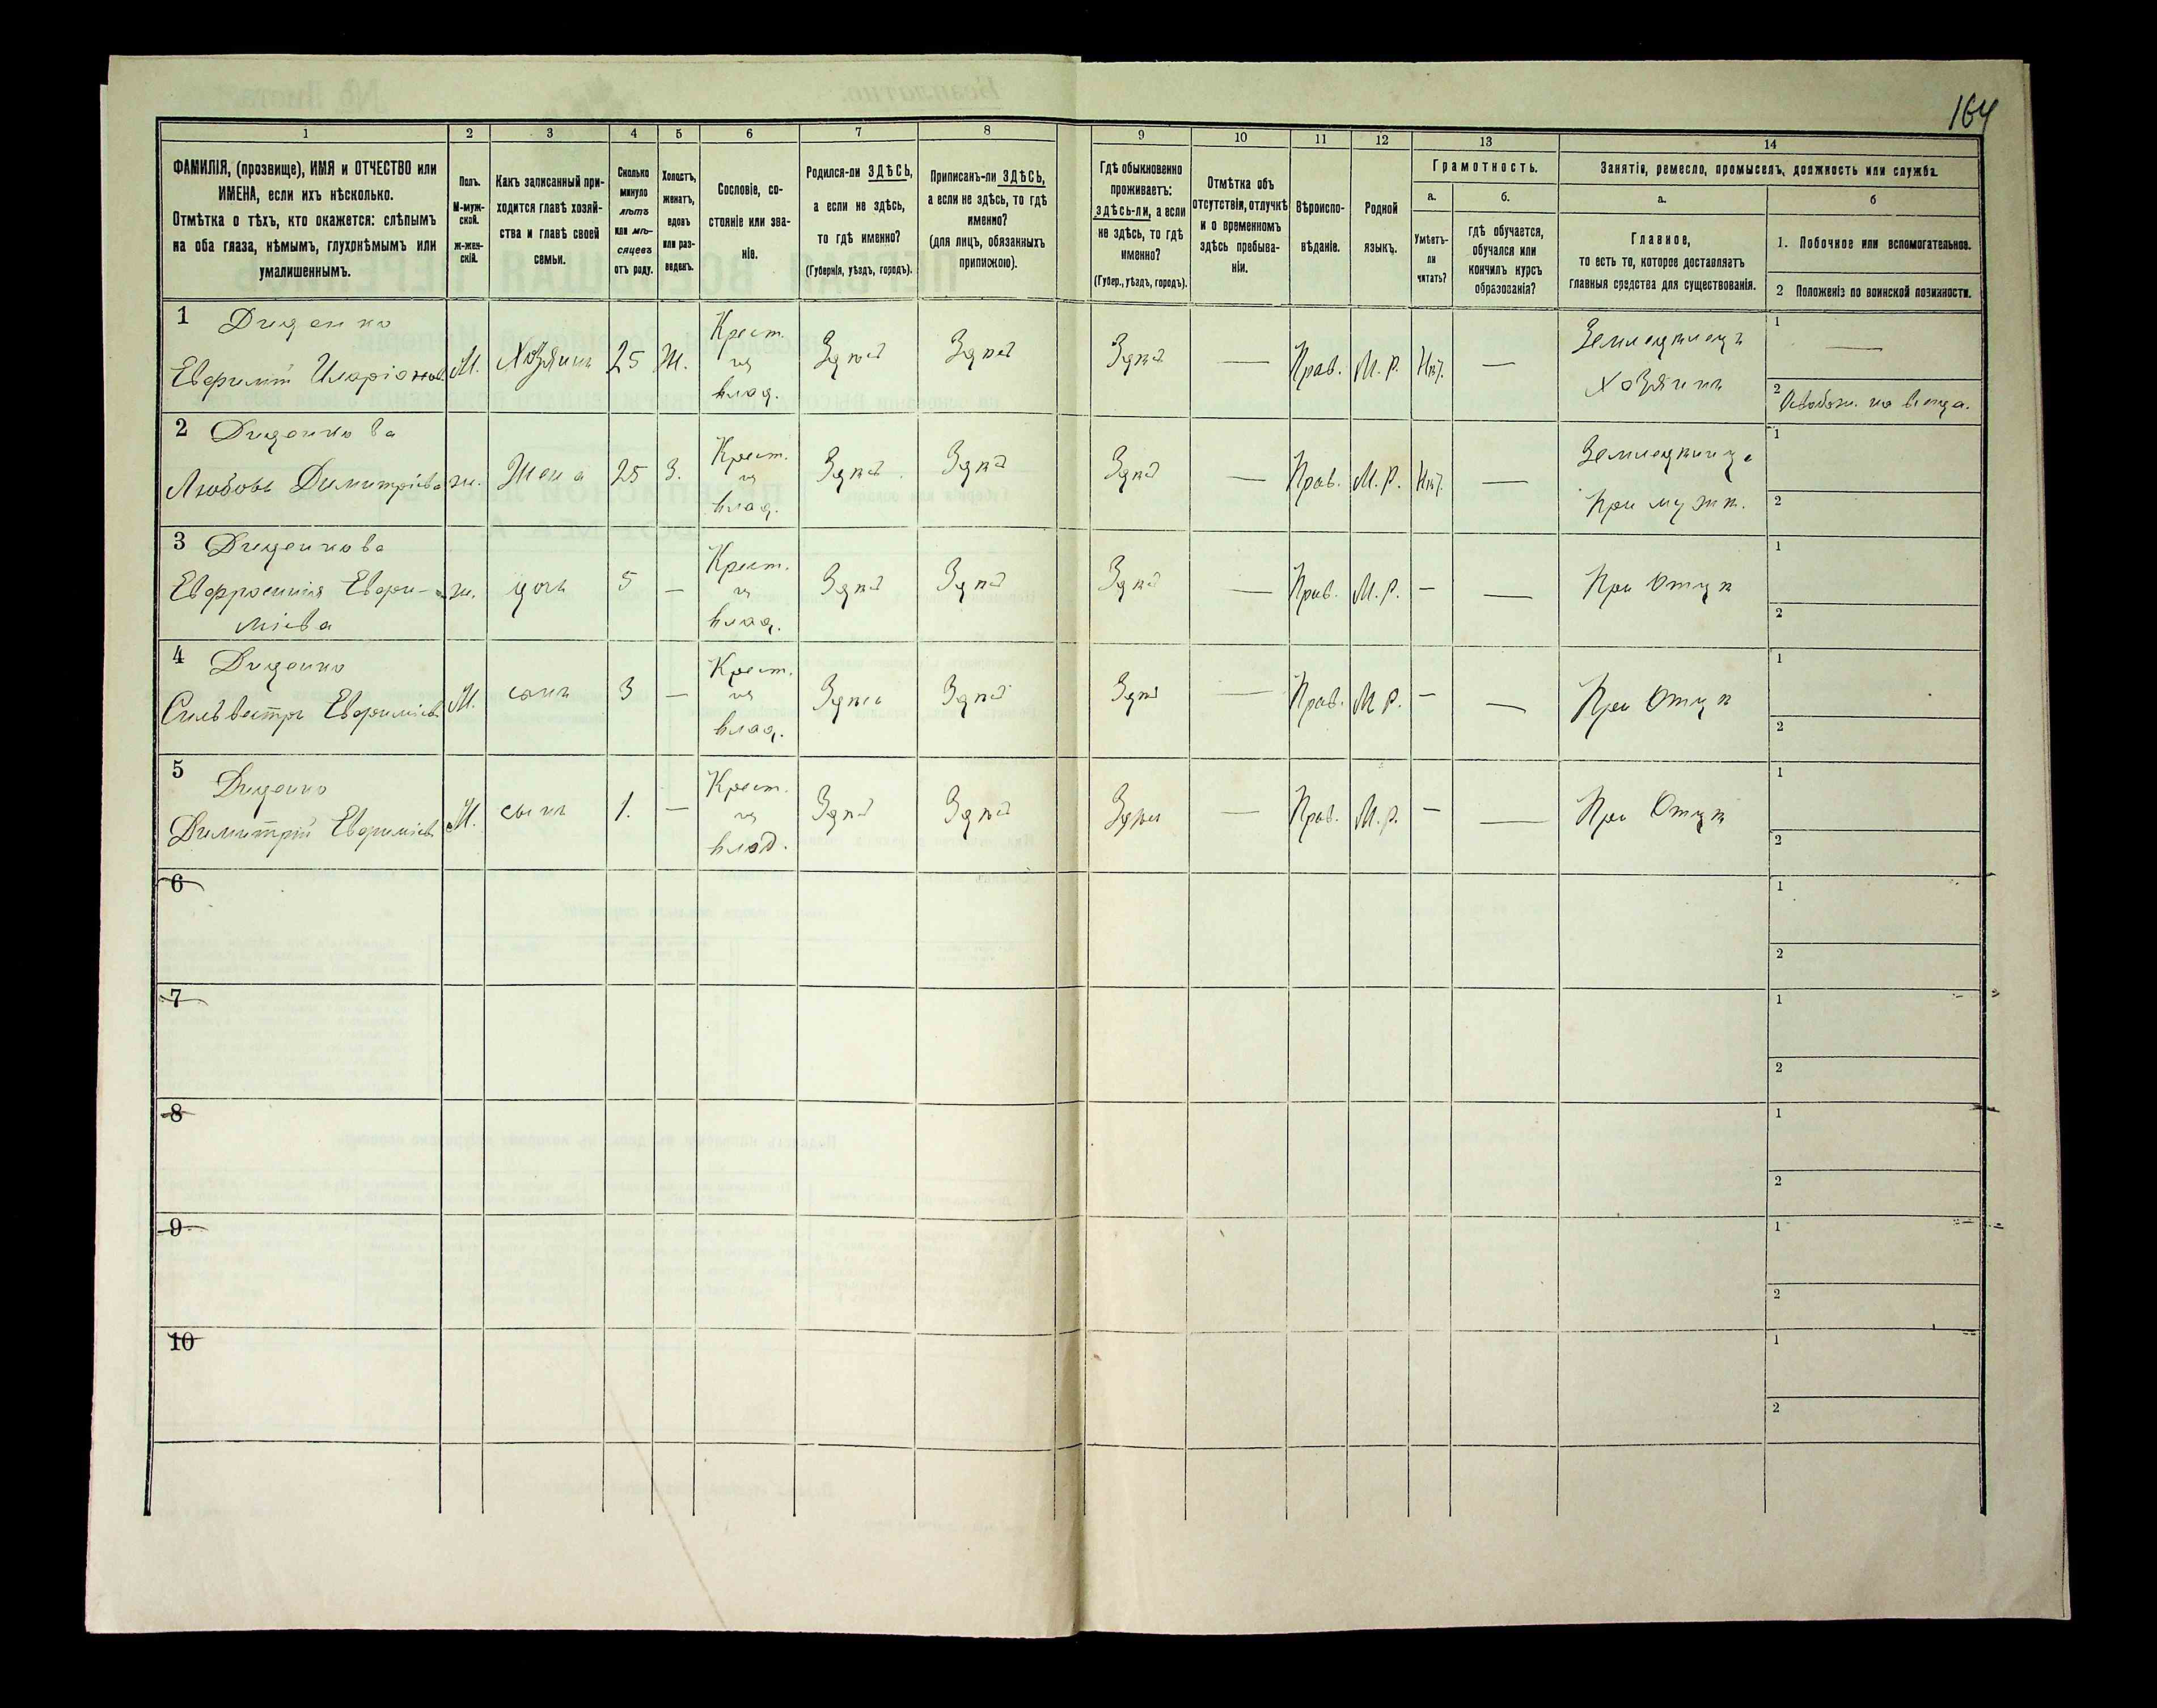 164
1 2 3 4 5 6 7 8 9 10 11 12 13 14
ФАМИЛІЯ, (прозвище), ИМЯ и ОТЧЕСТВО или
ИМЕНА, если ихъ нѣсколько.
Отмѣтка о тѣхъ, кто окажется: слѣпымъ
на оба глаза, нѣмымъ, глухонѣмымъ или
умалишеннымъ.
Полъ.
М-муж-
ской.
ж-жен-
скій.
Какъ записанный при-
ходится главѣ хозяй-
ства и главѣ своей
семьи.
Сколько
минуло
лѣтъ
или мѣ-
сяцевъ
отъ роду.
Холостъ,
женатъ,
вдовъ
или раз-
веденъ.
Сословіе, со-
стояніе или зва-
ніе.
Родился-ли ЗДѢСЬ,
а если не здѣсь,
то гдѣ именно?
(Губернія, уѣздъ, городъ).
Приписанъ-ли ЗДѢСЬ,
а если не здѣсь, то гдѣ
именно?
(для лицъ, обязанныхъ
припискою).
Гдѣ обыкновенно
проживаетъ:
здѣсь-ли, а если
не здѣсь, то гдѣ
именно?
(Губер., уѣздъ, городъ).
Отмѣтка объ
отсутствіи, отлучкѣ
и о временномъ
здѣсь пребыва-
ніи.
Вѣроиспо-
вѣданіе.
Родной
языкъ.
Грамотность.
а.
Умѣетъ-
ли
читать?
б.
гдѣ обучается,
обучался или
кончилъ курсъ
образованія?
Занятія, ремесло, промыселъ, должность или служба.
а.
Главное,
то есть то, которое доставляетъ
главныя средства для существованія.
б
1. Побочное или вспомогательное.
2 Положеніе по воинской повинности.
1 Диденко
Евфимій Иларіонов. М. Хозяинъ 25 Ж. Крест. из влад. Здѣсь Здѣсь Здѣсь — Прав. М. Р. Нѣт. — Земледѣлецъ
Хозяинъ
1 —
2 Освобож. на всегда.
2 Диденкова
Любовь Димитріева ж. Жена 25 З. Крест. из влад. Здѣсь Здѣсь Здѣсь — Прав. М. Р. Нѣт. — Земледѣлица
При мужѣ.
1
2
3 Диденкова
Евфросинія Евфи-
міева ж. дочь 5 — Крест. из влад. Здѣсь Здѣсь Здѣсь — Прав. М. Р. — — При Отцѣ
1
2
4 Диденко
Сильвестръ Евфиміев. М. сынъ 3 — Крест. из влад. Здѣсь Здѣсь Здѣсь — Прав. М. Р. — — При Отцѣ
1
2
5 Диденко
Димитрій Евфиміев. М. сынъ 1. — Крест. из влад. Здѣсь Здѣсь Здѣсь — Прав. М. Р. — — При Отцѣ
1
2
6
1
2
7
1
2
8
1
2
9
1
2
10
1
2